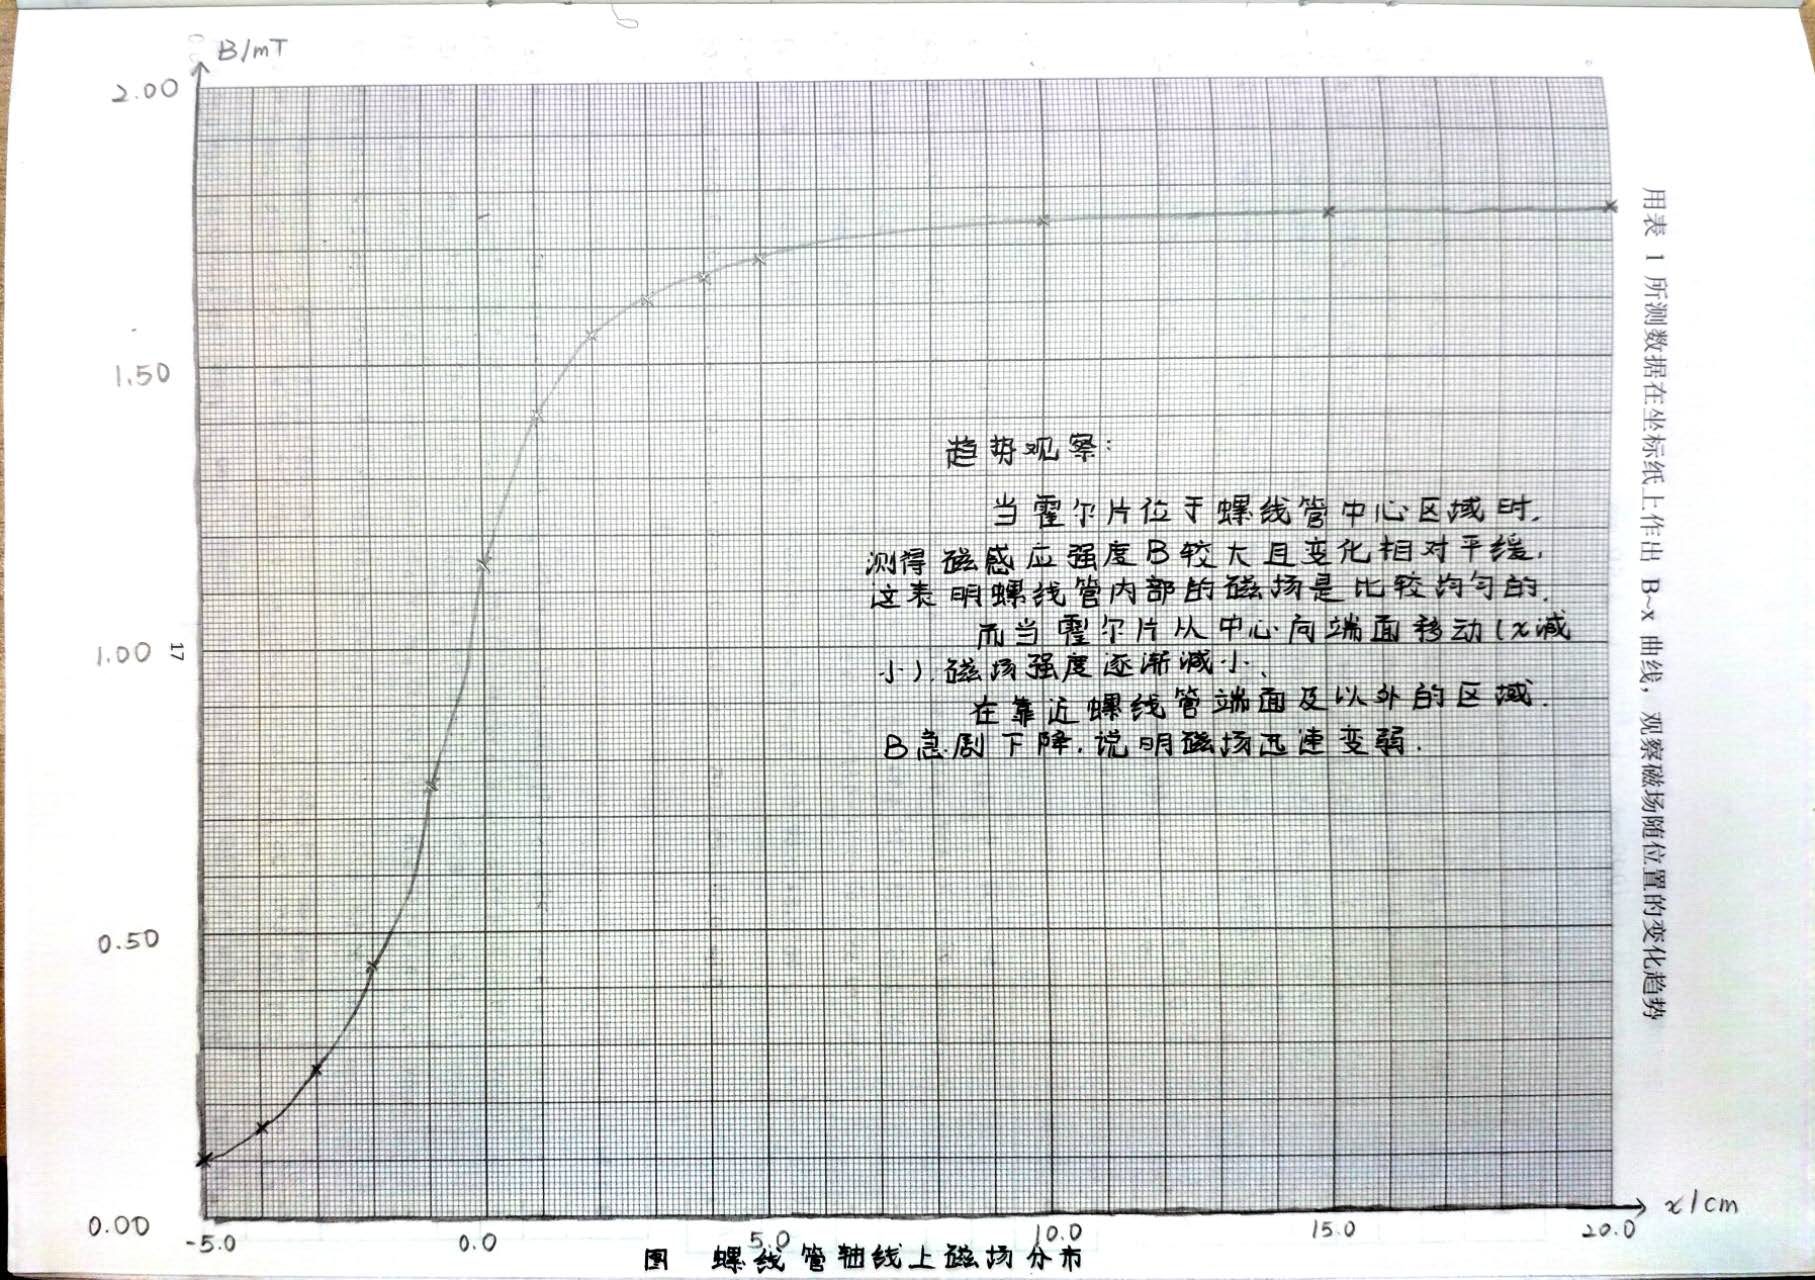 B/mT
2.00
1.50
1.00
0.50
0.00
17
趋势观察:
当霍尔片位于螺线管中心区域时,
测得磁感应强度B较大且变化相对平缓,
这表明螺线管内部的磁场是比较均匀的.
而当霍尔片从中心向端面移动(x减
小),磁场强度逐渐减小.
在靠近螺线管端面及以外的区域.
B急剧下降,说明磁场迅速变弱.
-5.0 0.0 5.0 10.0 15.0 20.0
x/cm
图 螺线管轴线上磁场分布
用表 1 所测数据在坐标纸上作出 B~x 曲线，观察磁场随位置的变化趋势